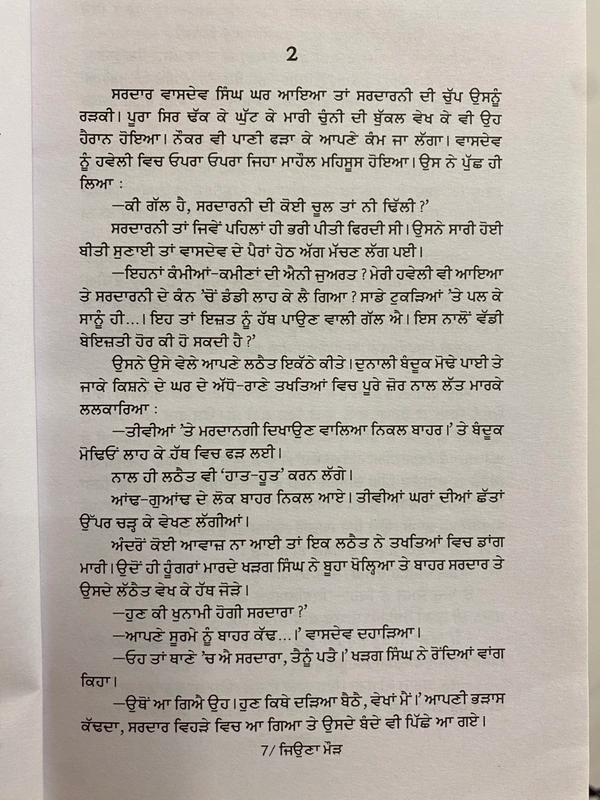 2
ਸਰਦਾਰ ਵਾਸਦੇਵ ਸਿੰਘ ਘਰ ਆਇਆ ਤਾਂ ਸਰਦਾਰਨੀ ਦੀ ਚੁੱਪ ਉਸਨੂੰ
ਰੜਕੀ। ਪੂਰਾ ਸਿਰ ਢੱਕ ਕੇ ਘੁੱਟ ਕੇ ਮਾਰੀ ਚੁੰਨੀ ਦੀ ਬੁੱਕਲ ਵੇਖ ਕੇ ਵੀ ਉਹ
ਹੈਰਾਨ ਹੋਇਆ। ਨੌਕਰ ਵੀ ਪਾਣੀ ਫੜਾ ਕੇ ਆਪਣੇ ਕੰਮ ਜਾ ਲੱਗਾ। ਵਾਸਦੇਵ
ਨੂੰ ਹਵੇਲੀ ਵਿਚ ਓਪਰਾ ਓਪਰਾ ਜਿਹਾ ਮਾਹੌਲ ਮਹਿਸੂਸ ਹੋਇਆ। ਉਸ ਨੇ ਪੁੱਛ ਹੀ
ਲਿਆ :
—ਕੀ ਗੱਲ ਹੈ, ਸਰਦਾਰਨੀ ਦੀ ਕੋਈ ਚੂਲ ਤਾਂ ਨੀ ਢਿੱਲੀ ?'
ਸਰਦਾਰਨੀ ਤਾਂ ਜਿਵੇਂ ਪਹਿਲਾਂ ਹੀ ਭਰੀ ਪੀਤੀ ਫਿਰਦੀ ਸੀ। ਉਸਨੇ ਸਾਰੀ ਹੋਈ
ਬੀਤੀ ਸੁਣਾਈ ਤਾਂ ਵਾਸਦੇਵ ਦੇ ਪੈਰਾਂ ਹੇਠ ਅੱਗ ਮੱਚਣ ਲੱਗ ਪਈ।
—ਇਹਨਾਂ ਕੰਮੀਆਂ-ਕਮੀਣਾਂ ਦੀ ਐਨੀ ਜੁਅਰਤ ? ਮੇਰੀ ਹਵੇਲੀ ਵੀ ਆਇਆ
ਤੇ ਸਰਦਾਰਨੀ ਦੇ ਕੰਨ 'ਚੋਂ ਡੰਡੀ ਲਾਹ ਕੇ ਲੈ ਗਿਆ ? ਸਾਡੇ ਟੁਕੜਿਆਂ 'ਤੇ ਪਲ ਕੇ
ਸਾਨੂੰ ਹੀ...। ਇਹ ਤਾਂ ਇਜ਼ਤ ਨੂੰ ਹੱਥ ਪਾਉਣ ਵਾਲੀ ਗੱਲ ਐ। ਇਸ ਨਾਲੋਂ ਵੱਡੀ
ਬੇਇਜ਼ਤੀ ਹੋਰ ਕੀ ਹੋ ਸਕਦੀ ਹੈ ?'
ਉਸਨੇ ਉਸੇ ਵੇਲੇ ਆਪਣੇ ਲਠੈਤ ਇਕੱਠੇ ਕੀਤੇ। ਦੁਨਾਲੀ ਬੰਦੂਕ ਮੋਢੇ ਪਾਈ ਤੇ
ਜਾਕੇ ਕਿਸ਼ਨੇ ਦੇ ਘਰ ਦੇ ਅੱਧੋ-ਰਾਣੇ ਤਖਤਿਆਂ ਵਿਚ ਪੂਰੇ ਜ਼ੋਰ ਨਾਲ ਲੱਤ ਮਾਰਕੇ
ਲਲਕਾਰਿਆ :
—ਤੀਵੀਆਂ 'ਤੇ ਮਰਦਾਨਗੀ ਦਿਖਾਉਣ ਵਾਲਿਆ ਨਿਕਲ ਬਾਹਰ।' ਤੇ ਬੰਦੂਕ
ਮੋਢਿਓਂ ਲਾਹ ਕੇ ਹੱਥ ਵਿਚ ਫੜ ਲਈ।
ਨਾਲ ਹੀ ਲਠੈਤ ਵੀ 'ਹਾਤ-ਹੂਤ' ਕਰਨ ਲੱਗੇ।
ਆਂਢ-ਗੁਆਂਢ ਦੇ ਲੋਕ ਬਾਹਰ ਨਿਕਲ ਆਏ। ਤੀਵੀਆਂ ਘਰਾਂ ਦੀਆਂ ਛੱਤਾਂ
ਉੱਪਰ ਚੜ੍ਹ ਕੇ ਵੇਖਣ ਲੱਗੀਆਂ।
ਅੰਦਰੋਂ ਕੋਈ ਆਵਾਜ਼ ਨਾ ਆਈ ਤਾਂ ਇਕ ਲਠੈਤ ਨੇ ਤਖਤਿਆਂ ਵਿਚ ਡਾਂਗ
ਮਾਰੀ। ਉਦੋਂ ਹੀ ਹੂੰਗਰਾਂ ਮਾਰਦੇ ਖੜਗ ਸਿੰਘ ਨੇ ਬੂਹਾ ਖੋਲ੍ਹਿਆ ਤੇ ਬਾਹਰ ਸਰਦਾਰ ਤੇ
ਉਸਦੇ ਲੱਠੈਤ ਵੇਖ ਕੇ ਹੱਥ ਜੋੜੇ।
—ਹੁਣ ਕੀ ਖੁਨਾਮੀ ਹੋਗੀ ਸਰਦਾਰਾ ?'
—ਆਪਣੇ ਸੂਰਮੇ ਨੂੰ ਬਾਹਰ ਕੱਢ...।' ਵਾਸਦੇਵ ਦਹਾੜਿਆ।
—ਓਹ ਤਾਂ ਥਾਣੇ 'ਚ ਐ ਸਰਦਾਰਾ, ਤੈਨੂੰ ਪਤੈ।' ਖੜਗ ਸਿੰਘ ਨੇ ਰੋਂਦਿਆਂ ਵਾਂਗ
ਕਿਹਾ।
—ਉਥੋਂ ਆ ਗਿਐ ਉਹ। ਹੁਣ ਕਿਥੇ ਦੜਿਆ ਬੈਠੈ, ਵੇਖਾਂ ਮੈਂ।' ਆਪਣੀ ਭੜਾਸ
ਕੱਢਦਾ, ਸਰਦਾਰ ਵਿਹੜੇ ਵਿਚ ਆ ਗਿਆ ਤੇ ਉਸਦੇ ਬੰਦੇ ਵੀ ਪਿੱਛੇ ਆ ਗਏ।
7/ ਜਿਉਣਾ ਮੌੜ